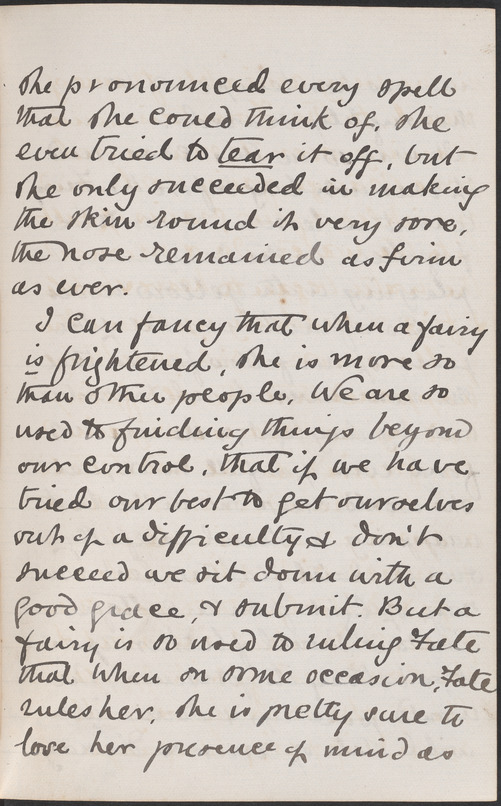 she pronounced every spell
that she could think of, she
even tried to tear it off, but
she only succeeded in making
the skin round it very sore,
the nose remained as firm
as ever.
I can fancy that when a fairy
is frightened, she is more so
than other people. We are so
used to finding things beyond
our control, that if we have
tried our best to get ourselves
out of a difficulty & don't
succeed we sit down with a
good grace, & submit. But a
fairy is so used to ruling Fate
that when on some occasion, Fate
rules her, she is pretty sure to
lose her presence of mind as